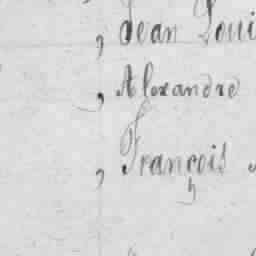 , Jean Loui
, Alexandre
, François